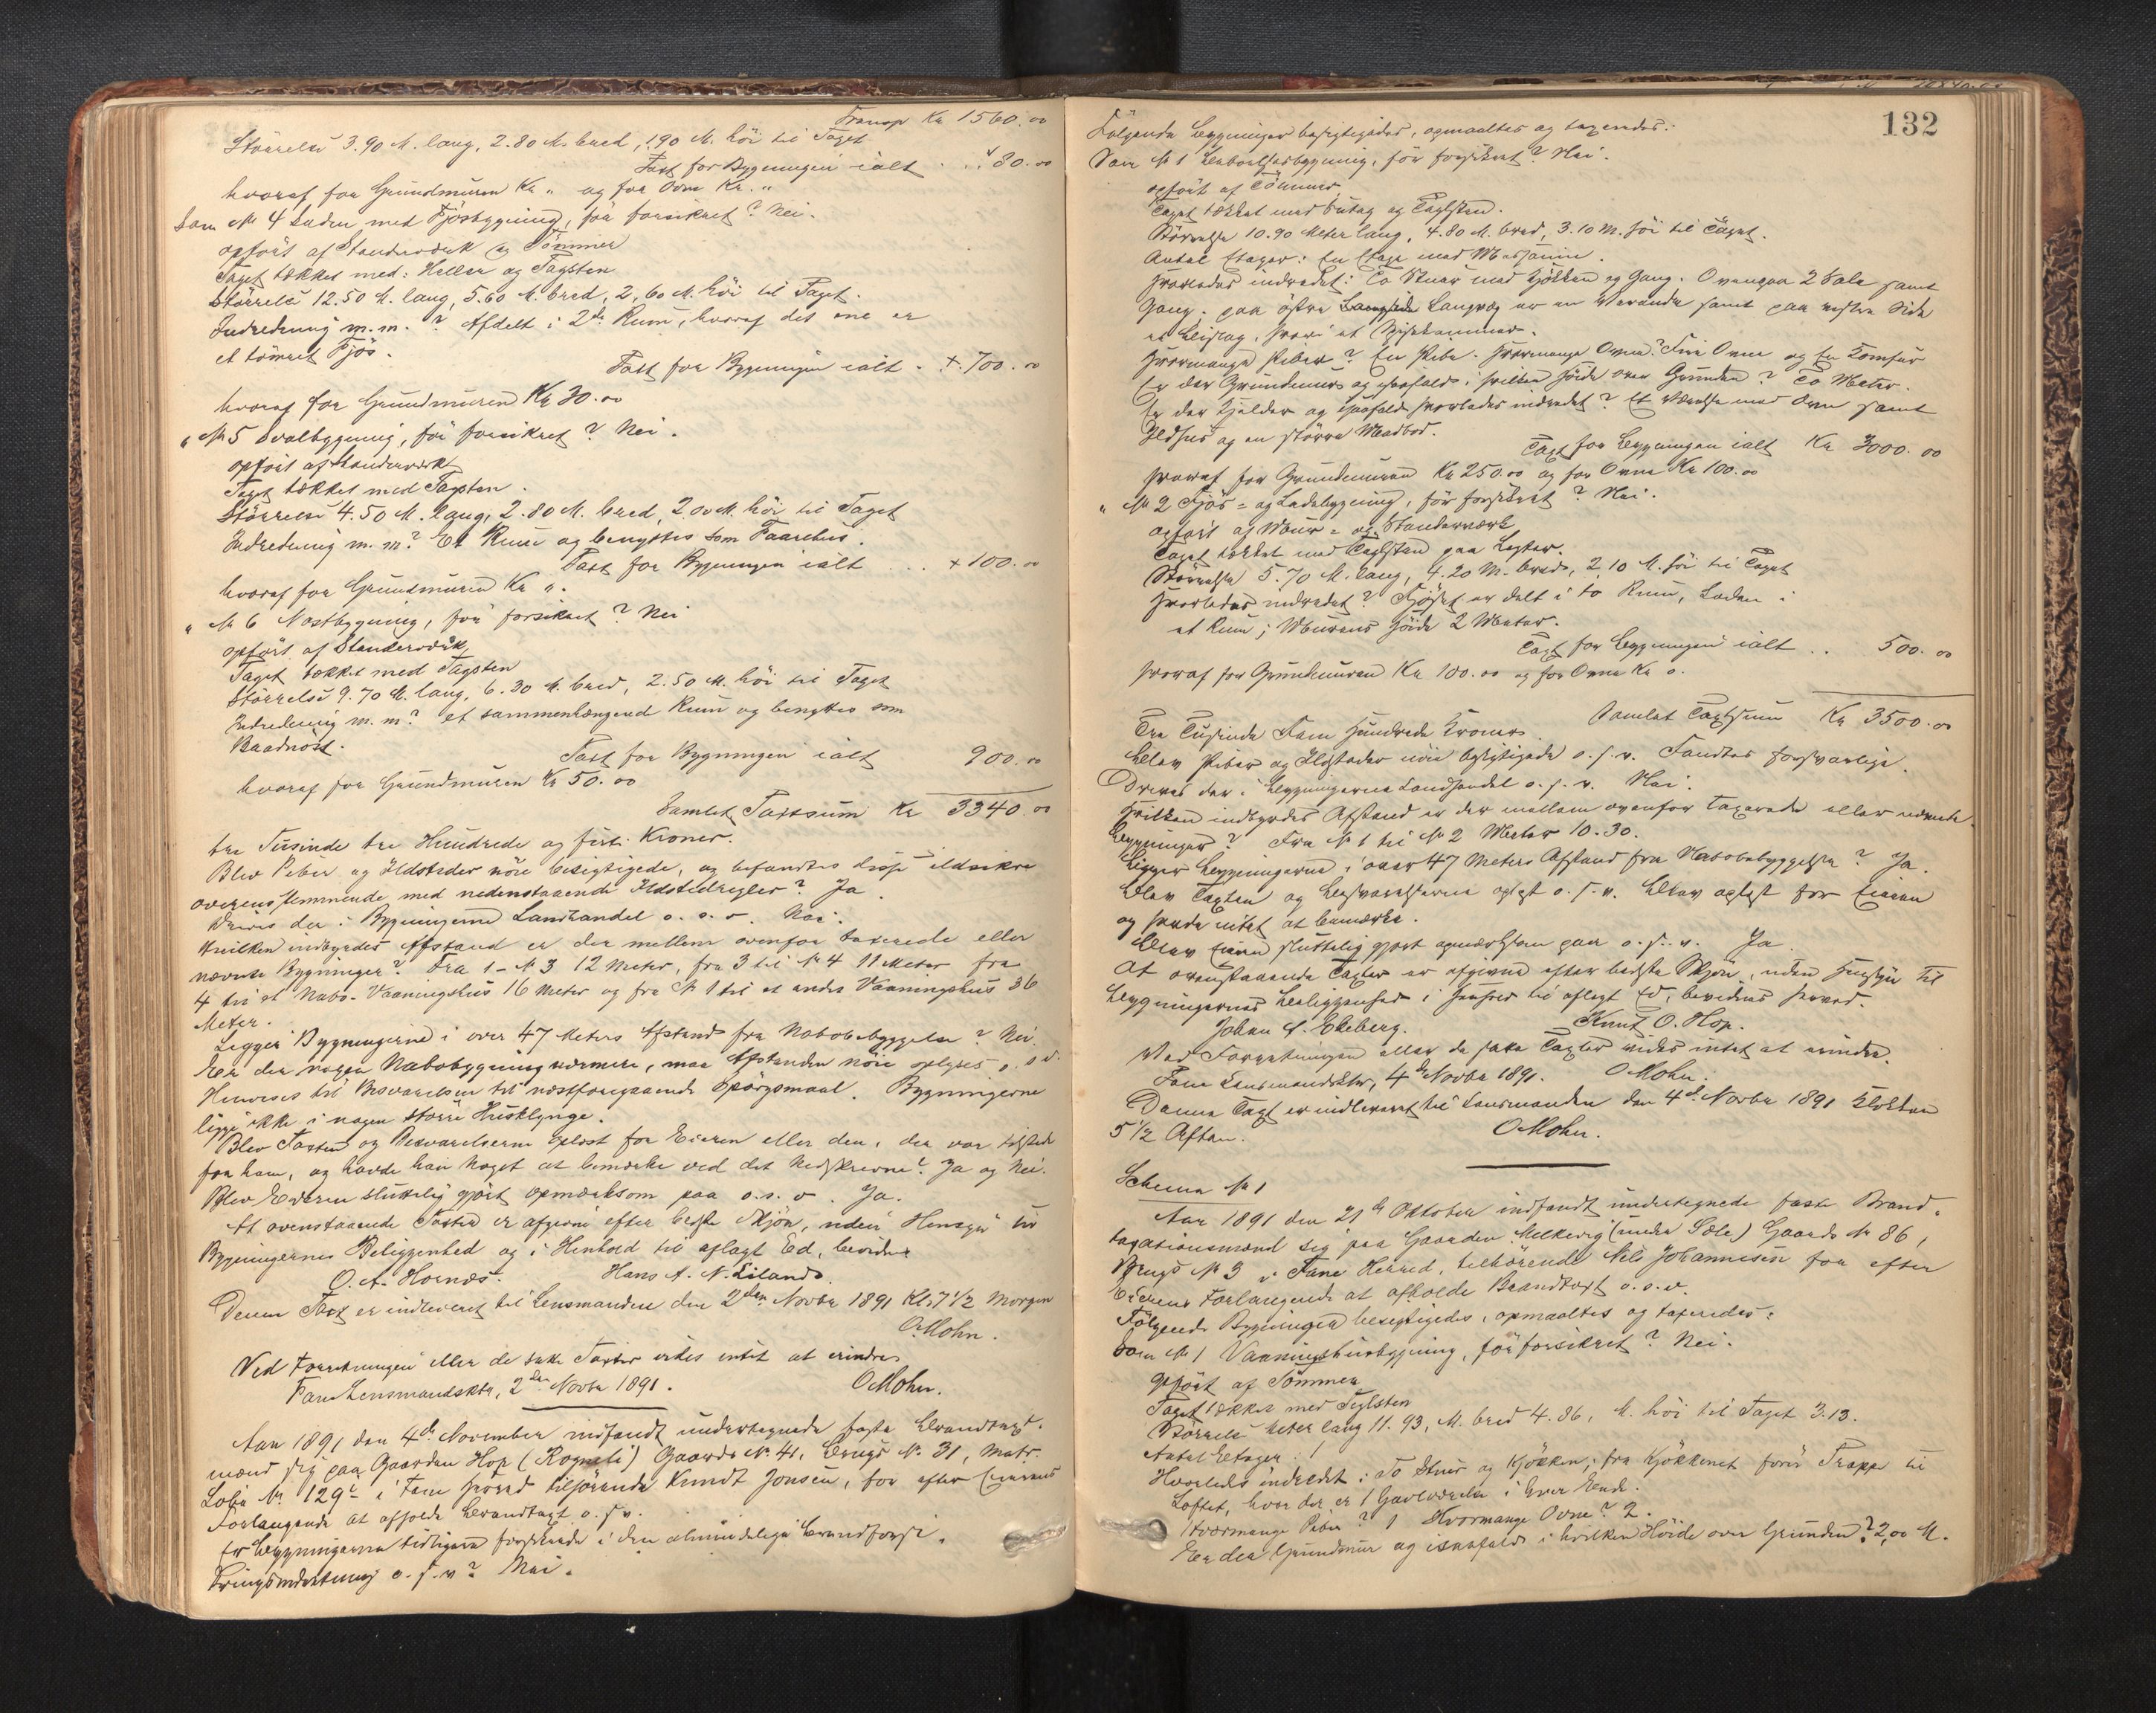 Transp Kr 1560.00
Störrelse 3.90 M. lang, 2.80 M. bred, 1.90 M. höi til Taget
Taxt for Bygningen ialt . . " 80.00
hvoraf for Grundmuren Kr " og for Ovne Kr. "
Som No 4 Laden med Fjösbygning, för forsikret? Nei.
opfört af Standerværk og Tömmer
Taget tækket med: Heller og Tagsten
Störrelse 12.50 M. lang, 5.60 M. bred, 2,60 M. höi til Taget.
Indredning m.m.? Afdelt i 2de Rum, hvoraf det ene er
et tömret Fjös.
Taxt for Bygningen ialt . + 700.00
hvoraf for Grundmuren Kr 30.00
" No 5 Svalbygning, för forsikret? Nei.
opfört af Standerværk
Taget tækket med Tagsten.
Störrelse 4.50 M. lang, 2.80 M. bred, 2.00 M. höi til Taget
Indredning m. m? Et Rum og benyttes som Faarehus.
Taxt for Bygningen ialt . . . + 100.00
hvoraf for Grundmuren Kr ".
" No 6 Nostbygning, för forsikret? Nei
opfört af Standerværk
Taget tækket med Tagsten
Störrelse 9.70 M. lang, 6.30 M. bred, 2.50 M. höi til Taget
Indredning m. m? et sammenhængende Rum og benyttes som
Baadnöst.
Taxt for Bygningen ialt 900.00
hvoraf for Grundmuren Kr 50.00
Samlet Taxtsum Kr 3340.00
tre Tusinde tre Hundrede og firti Kroner.
Blev Piber og Ildsteder nöie besigtigede, og befandtes disse ildsikre
overensstemmende med nedenstaaende Ildstedregler? Ja
Drives der i Bygningerne Landhandel o. s. v. Nei.
Hvilken indbyrdes Afstand er der mellem ovenfor taxerede eller
nævnte Bygninger? Fra 1 - No 3 12 Meter, fra 3 til No 4 11 Meter fra
4 til et Nabo-Vaaningshus 16 Meter og fra No 1 til et andet Vaaningshus 36
Meter.
Ligger Bygningerne i over 47 Meters Afstand fra Nabobebyggelse? Nei.
Er der nogen Nabobygning nærmere, maa Afstanden nöie oplyses o. s. v.
Henvises til Besvarelsen til næstforegaaende Spörgsmaal. Bygningerne
ligge ikke i nogen större Husklynge.
Blev Taxten og Besvarelserne oplæst for Eieren eller den, der var tilstede
for ham, og havde han Noget at bemærke ved det Nedskrevne? Ja og Nei.
Blev Eieren sluttelig gjort opmærksom paa o. s. v. Ja.
At ovenstaaende Taxter er afgivne efter bedste Skjön, uden Hensyn til
Bygningernes Beliggenhed og i Henhold til aflagt Ed, bevidnes
O. A. Hornæs. Hans A. N. Liland.
Denne Taxt er indleveret til Lensmanden den 2den Novbr 1891 Kl. 7 1/2 Morgen
O Mohn.
Ved Forretningen eller de satte Taxter vides intet at erindre
Fane Lensmandsktr, 2den Novbr 1891. O Mohn.
Aar 1891 den 4de November indfandt undertegnede faste Brandtaxt-
mænd sig paa Gaarden Hop (Rogneli) Gaards No. 41, Brugs No. 31, Matr.
Löbe No. 129c i Fane Herred tilhörende Knudt Jonsen, for efter Eierens
Forlangende at afholde Brandtaxt o. s. v.
Er Bygningerne tidligere forsikrede i den almindelige Brandforsi-
kringsindretning o. s. v? Nei.
132
Fölgende Bygninger besigtigedes, opmaaltes og taxeredes:
Som No 1 Beboelsesbygning, för forsikret? Nei.
opfört af Tömmer
Taget tækket med Sutag og Taglsten.
Störrelse 10.90 Meter lang, 4.80 M. bred, 3.10 M. höi til Taget.
Antal Etager: En Etage med Messanin.
Hvorledes indredet: To Stuer med Kjökken og Gang. Ovenpaa 2 Sale samt
Gang. paa östre Langside Langvæg er en Veranda samt paa vestre Side
et Bislag, hvori et Spisekammer.
Hvormange Piber? En Pibe. Hvormange Ovne? Fire Ovne og En Komfur
Er der Grundmur og isaafald i hvilken Höide over Grunden? To Meter.
Er der Kjelder og isaafald hvorledes indredet? Et Værelse med Ovn samt
Ildhus og en större Madbod.
Taxt for Bygningen ialt Kr 3000.00
hvoraf for Grundmuren Kr 250.00 og for Ovne Kr 100.00
" No 2 Fjös- og Ladebygning, för forsikret? Nei.
opfört af Mur- og Standerværk
Taget tækket med Taglsten paa Lægter.
Störrelse 5.70 M. lang, 4.20 M. bred, 2.10 M. höi til Taget
Hvorledes indredet? Fjöset er delt i to Rum, Laden i
et Rum; Murens Höide 2 Meter.
Taxt for Bygningen ialt . . 500.00
hvoraf for Grundmuren Kr 100.00 og for Ovne Kr 0.
Samlet Taxtsum Kr 3500.00
Tre Tusinde Fem Hundrede Kroner.
Blev Piber og Ildsteder nöie besigtigede o. s. v. Fandtes forsvarlige.
Drives der i Bygningerne Landhandel o. s. v. Nei.
Hvilken indbyrdes Afstand er der mellem ovenfor taxerede eller nævnte
Bygninger? Fra No 1 til No 2 Meter 10.30.
Ligger Bygningerne i over 47 Meters Afstand fra Nabobebyggelse? Ja.
Blev Taxten og Besvarelserne oplæst o. s. v. Blev oplæst for Eieren
og havde intet at bemærke.
Blev Eieren sluttelig gjort opmærksom paa o. s. v. Ja.
At ovenstaaende Taxter er afgivne efter bedste Skjön, uden Hensyn til
Bygningernes Beliggenhed i Henhold til aflagt Ed, bevidnes herved.
Johan A. Ekeberg. Knut O. Hop.
Ved Forretningen eller de satte Taxter vides intet at erindre.
Fane Lensmandsktr, 4de Novbr 1891. O Mohn.
Denne Taxt er indleveret til Lensmanden den 4de Novbr 1891 Klokken
5 1/2 Aften. O Mohn.
Schema No 1
Aar 1891 den 21de Oktober indfandt undertegnede faste Brand-
taxationsmænd sig paa Gaarden Melkevig (under Sæle) Gaards No 86,
Brugs No 3 i Fane Herred, tilhörende Nils Johannesen for efter
Eierens Forlangende at afholde Brandtaxt o. s. v.
Fölgende Bygninger besigtigedes, opmaaltes og taxeredes:
Som No 1 Vaaningshusbygning, för forsikret? Nei.
opfört af Tömmer
Taget tækket med Teglsten
Störrelse Meter lang 11.93, M. bred 4.86, M. höi til Taget 3.13.
Antal Etager: 1
Hvorledes indredet: To Stuer og Kjökken; fra Kjökkenet förer Trappe til
Loftet, hvor der er 1 Gavlværelse i hver Ende.
Hvormange Piber? 1 Hvormange Ovne? 2.
Er der Grundmur og isaafald i hvilken Höide over Grunden? 2,00 M.